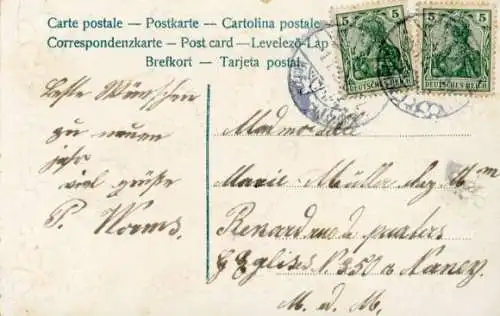 Carte postale — Postkarte — Cartolina postale
Correspondenzkarte — Post card — Levelező-Lap
Brefkort — Tarjeta postal
5 5
DEUTSCHES REICH
5 5
DEUTSCHES REICH
beste Wünschen
zu neuen
jahr
viel grüße
P. Worms.
Madmoisell
Marie Müller
Renard rue
Eglises N. 250 a Nancy.
M. d. M.